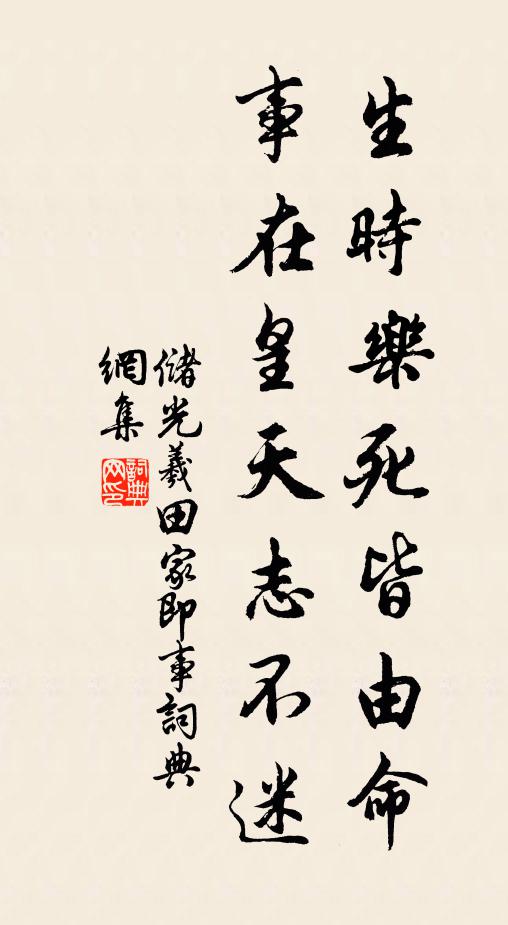 生時樂死皆由命
事在皇天志不迷
儲光羲田家即事詞典
網集
詞典網印